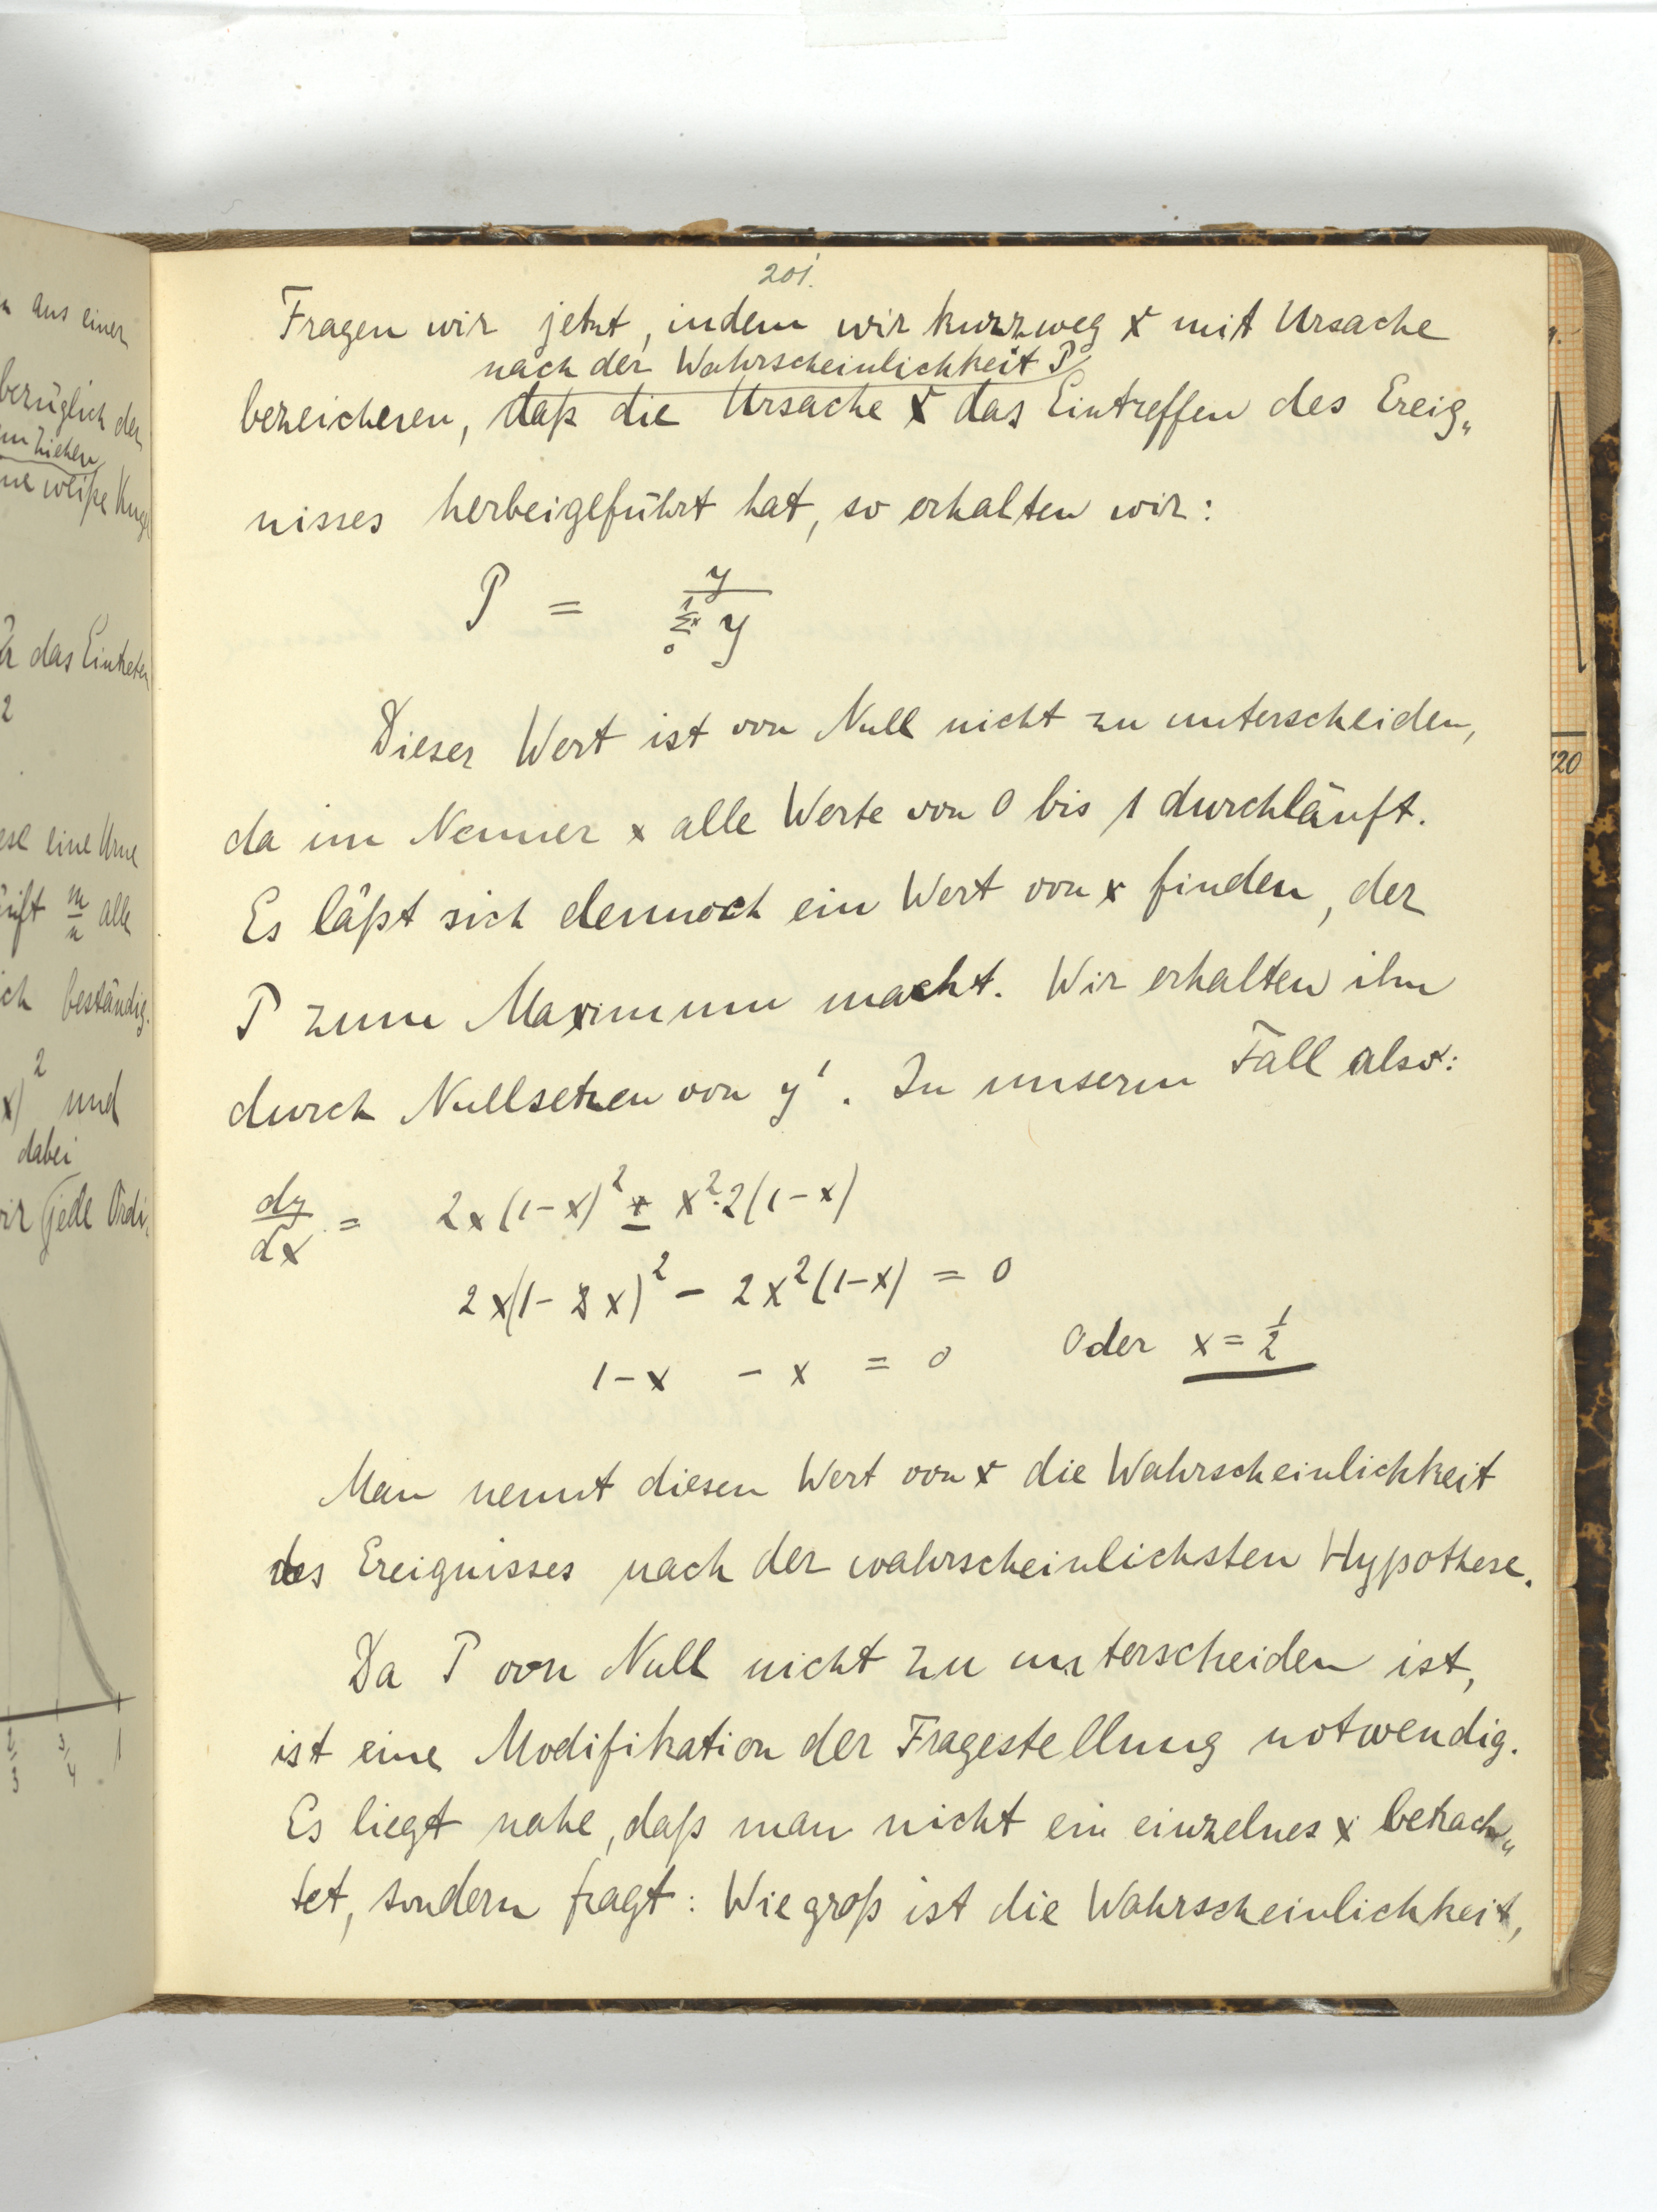 n aus einer
bezüglich der
m Ziehen
ne weiße Kug
das Eintreten
2
ese eine Urne
m/n alle
ich beständig.
x)² und
dabei
wir jede Ordi„
2/3 3/4 1
201.
Fragen wir jetzt, indem wir kurzweg x mit Ursache
nach der Wahrscheinlichkeit P
bezeichenen, daß die Ursache x das Eintreffen des Ereig„
nisses herbeigeführt hat, so erhalten wir:
P = y / ₀Σ¹ˣ y
Dieser Wert ist von Null nicht zu unterscheiden,
da im Nenner x alle Werte von 0 bis 1 durchläuft.
Es läßt sich dennoch ein Wert von x finden, der
P zum Maximum macht. Wir erhalten ihn
durch Nullsetzen von y'. In unserm Fall also:
dy/dx = 2x(1-x)² ± x²·2(1-x)
2x(1-x)² - 2x²(1-x) = 0
1-x - x = 0 Oder x = 1/2
Man nennt diesen Wert von x die Wahrscheinlichkeit
des Ereignisses nach der wahrscheinlichsten Hypothese.
Da P von Null nicht zu unterscheiden ist,
ist eine Modifikation der Fragestellung notwendig.
Es liegt nahe, daß man nicht ein einzelnes x betrach„
tet, sondern fragt: Wie groß ist die Wahrscheinlichkeit,
20